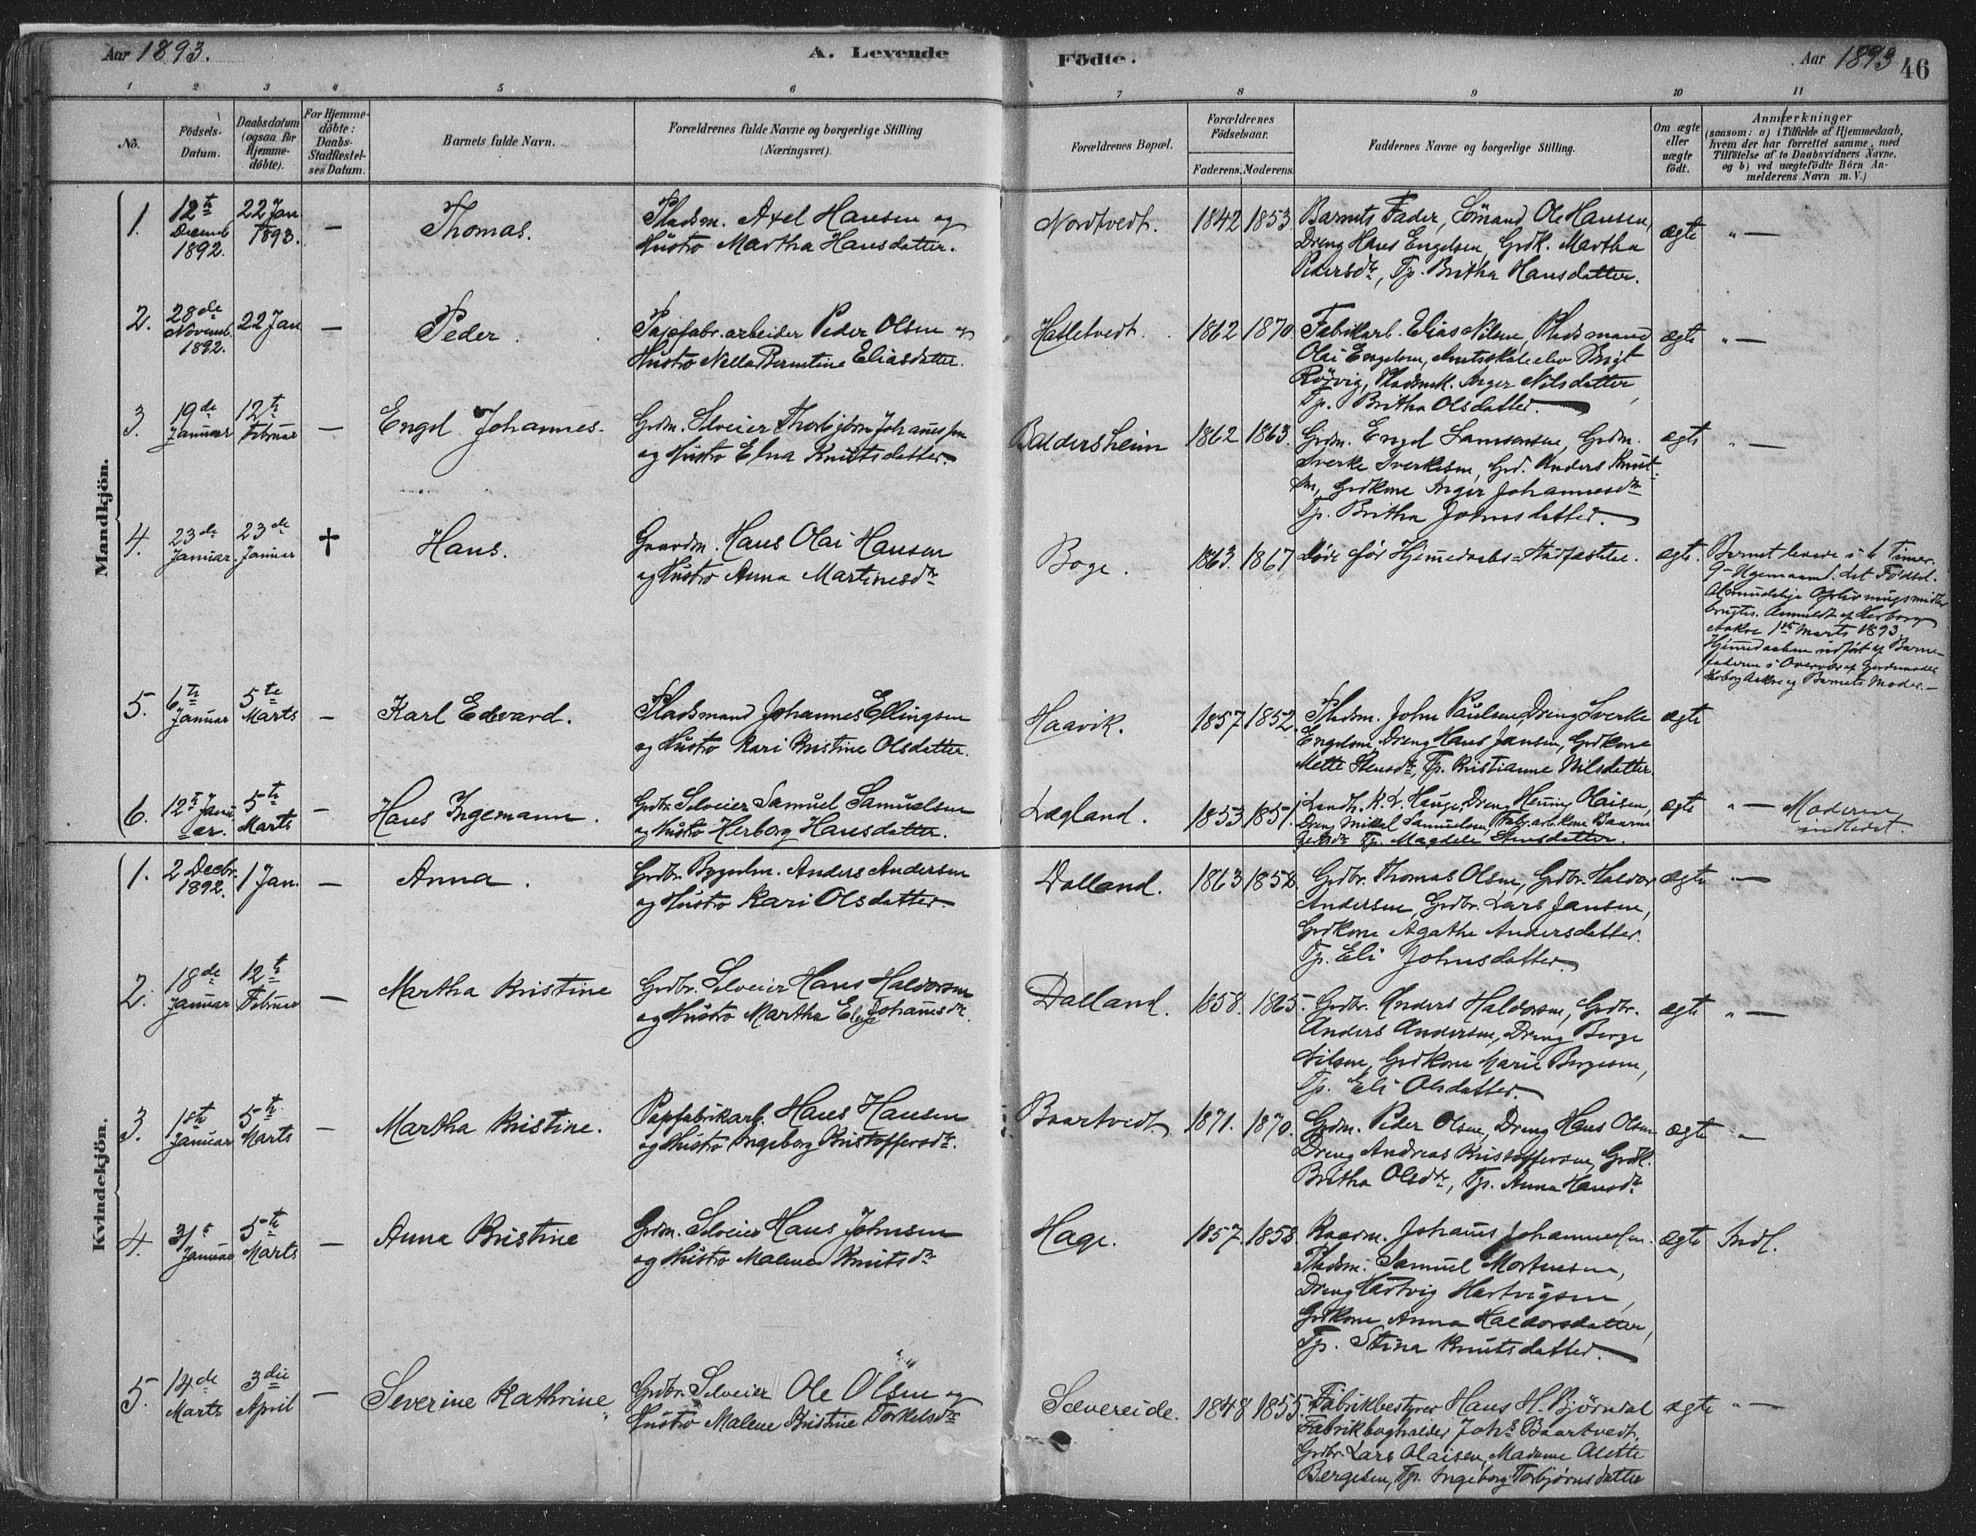 Aar 1893.
A. Levende
Födte.
Aar 1893
46
1 2 3 4 5 6 7 8 9 10 11
No.
Födsels-
Datum.
Daabsdatum
(ogsaa for
Hjemme-
döbte).
For Hjemme-
döbte:
Daabs-
Stadfæstel-
ses Datum.
Barnets fulde Navn.
Forældrenes fulde Navne og borgerlige Stilling
(Næringsvei).
Forældrenes Bopæl.
Forældrenes
Födselsaar.
Faderens. Moderens.
Faddernes Navne og borgerlige Stilling.
Om ægte
eller
uægte
födt.
Anmærkninger
(saasom: a) i Tilfælde af Hjemmedaab,
hvem der har forrettet samme, med
Tilföielse af to Daabsvidners Navne,
og b) ved uægtefödte Börn An-
melderens Navn m. V.)
Mandkjön.
1.
12te
Decemb
1892.
22 Jan
1893.
—
Thomas.
Pladsm. Axel Hansen og
Hustro Martha Hansdatter.
Nordtvedt.
1842 1853.
Barnets Fader, Sömand Ole Hansen,
Dreng Hans Engelsen, Grdk. Martha
Pedersdtr, Tp. Britha Hansdatter.
ægte
" —
2.
28de
Novemb.
1892.
22 Jan
—
Peder.
Papfabr.arbeider Peder Olsen og
Hustro Nella Berntine Eliasdatter.
Hatletvedt.
1862 1870.
Fabrikarb. Elias Nilsen, Pladsmand
Olai Engelsen, Amtsskoleelev
Inger Nilsdatter,
Tp. Britha Olsdatter.
ægte
" —
3.
19de
Januar
12te
Februar
—
Engel Johannes.
Grdm. Selveier Thorbjörn Johannessen
og Hustro Elna Knutsdatter.
Baldersheim
1862 1863.
Grdm. Engel Samsonsen, Grdm.
Sverke Sverkesen, Grd. Anders Knut-
sen, Grdkone Inger Johannesdtr
Tp. Britha Johnsdatter.
ægte
" —
4.
23de
Januar.
23de
Januar
†
Hans.
Gaardm. Hans Olai Hansen
og Hustro Anna Martinesdtr
Boge.
1863. 1867
Döde för Hjemmedaabs-Stadfæstelse.
ægte.
Barnet levede i 6 Timer.
brugtes. Anmeldt af Herborg
Aakre 1ste Marts 1893.
Hjemmedaaben udfört af Barne-
faderen i Overvær af Gjordemoder
Herborg Aakre og Barnets Moder.—
5.
6te
Januar
5te
Marts
—
Karl Edvard.
Pladsmand Johannes Ellingsen
og Hustro Kari Kristine Olsdatter.
Haavik.
1857. 1852.
Pladsm. John Paulsen, Dreng Sverke
Engelsen, Dreng Hans Jansen, Grdkone
Mette Stensdtr, Tp. Kristianne Nilsdatter.
ægte
6.
12te Janu
ar.
5te
Marts
—
Hans Ingemann.
Grdbr. Selveier Samuel Samuelsen
og Hustro Herborg Hansdatter.
Lægland.
1853. 1851.
Landh. K. L. Hauge, Dreng Henrig Olaisen,
Dreng Mikal Samuelsen,
Tp. Magdele
ægte
" —
Moderen
indledet.
Kvindekjön.
1.
2 Decbr.
1892.
1 Jan.
—
Anna.
Grdbr. Bygselm. Anders Andersen
og Hustro Kari Olsdatter.
Dalland.
1863 1858.
Grdbr. Thomas Olsen, Grdbr. Haldor
Andersen, Grdbr. Lars Jansen,
Grdkone Agathe Andersdatter.
Tp. Eli Johnsdatter.
ægte
" —
2.
18de
Januar.
12te
Februar
—
Martha Kristine
Grdbr. Selveier Hans Haldorsen
og Hustro Martha Elise Johannesdtr.
Dalland.
1858. 1865.
Grdbr. Anders Haldorsen, Grdbr.
Anders Andersen, Dreng Berge
Nilsen, Grdkone Marie Bergesen,
Tp. Eli Olsdatter.
ægte
" —
3.
1ste
Januar
5te
Marts
—
Martha Kristine.
Papfabrikarb. Hans Hansen
og Hustro Ingeborg Kristoffersdtr.
Baartvedt.
1871. 1870.
Grdm. Peder Olsen, Dreng Hans Olsen
Dreng Andreas Kristoffersen, Grdk.
Britha Olsdtr, Tp. Anna Hansdtr
ægte
" —
4.
31te
Januar
5te
Marts
—
Anna Kristine
Grdm. Selveier Hans Johnsen
og Hustro Malene Knutsdtr
Hage.
1857. 1858.
Kaarm. Johans Johannessen.
Pladsm. Samuel Mortensen,
Dreng Hartvig Hartvigsen,
Grdkone Anna Haldorsdatter,
Tp. Stina Knutsdatter.
ægte
Indl.
5.
14de
Marts
3die
April
—
Severine Kathrine
Grdbr. Selveier Ole Olsen og
Hustro Malene Kristine Torkelsdtr
Sævereide.
1848 1855.
Fabrikbestyrer Hans H. Björndal
Fabrikbogholder Johs Baartvedt,
Grdbr. Lars Olaisen, Madame Alette
Bergesen, Tp. Ingeborg Torbjörnsdatter
ægte
" —